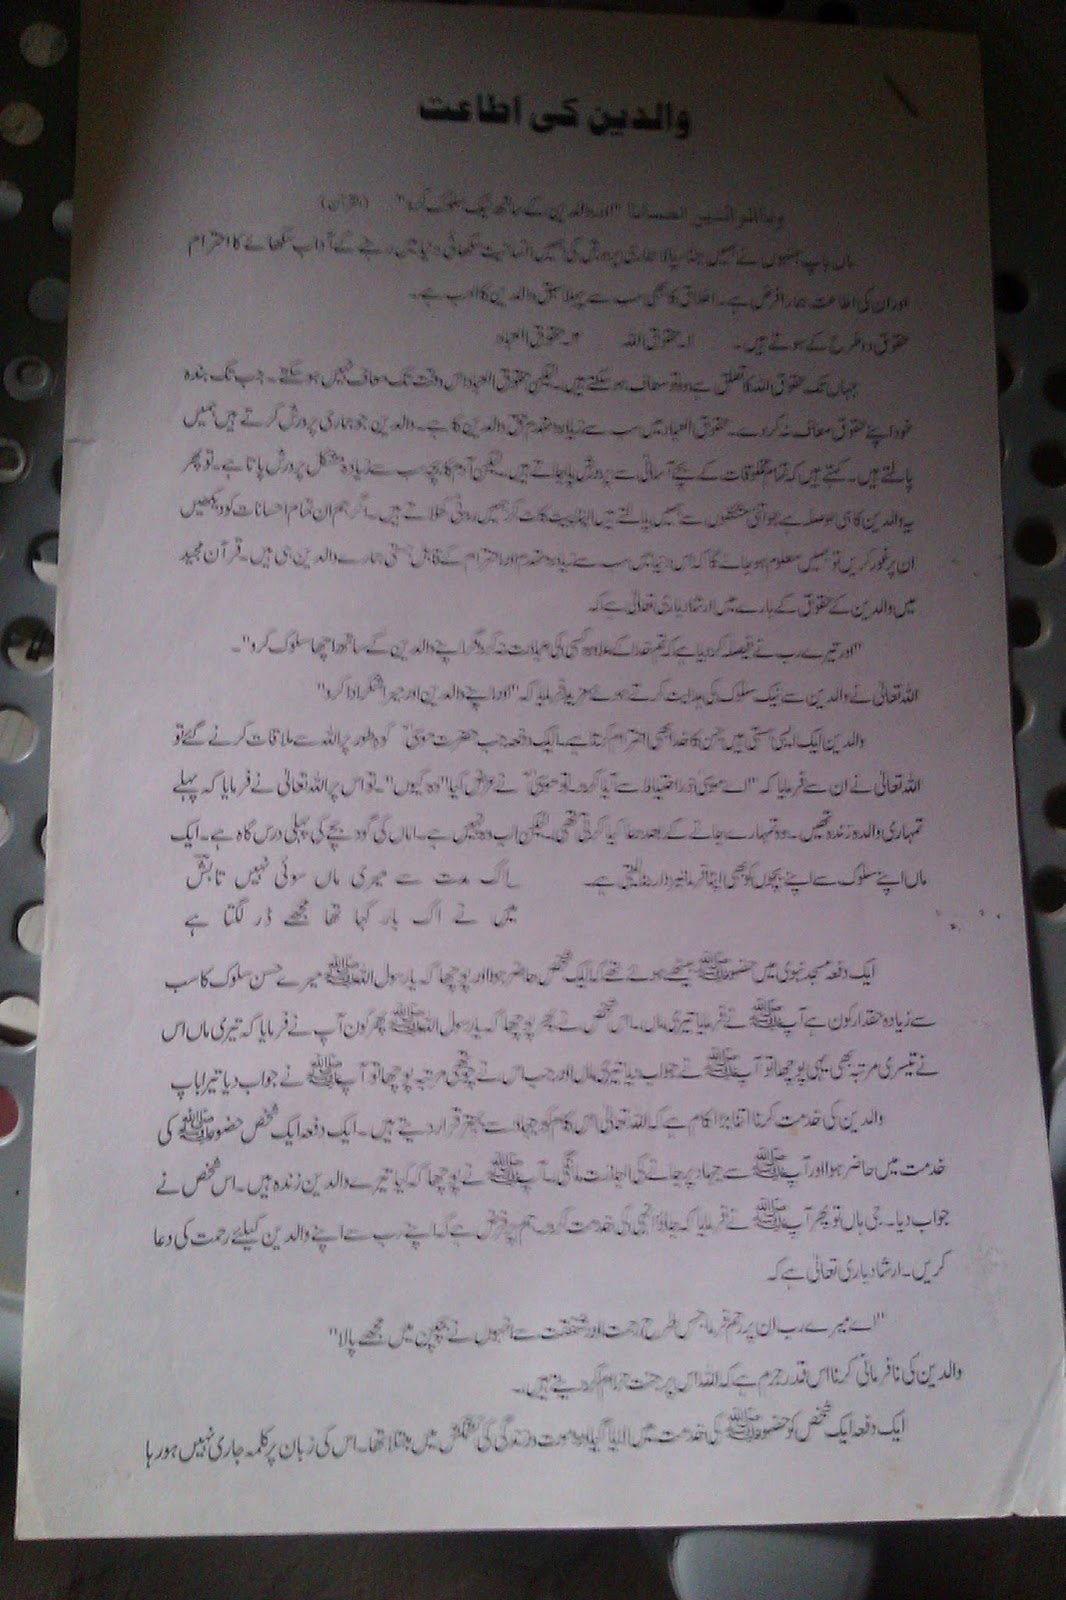 والدین کی اطاعت
وبالوالدین احسانا "اور والدین کے ساتھ نیک سلوک کرو" (القرآن)
ماں باپ جنہوں نے ہمیں جنما پالا ہماری پرورش کی ہمیں انسانیت سکھائی دنیا میں رہنے کے آداب سکھائے کا احترام
اور ان کی اطاعت ہمارا فرض ہے۔ اخلاق کا بھی سب سے پہلا سبق والدین کا ادب ہے۔
حقوق دو طرح کے ہوتے ہیں۔ ۱۔ حقوق اللہ ۲۔ حقوق العباد
جہاں تک حقوق اللہ کا تعلق ہے وہ تو معاف ہو سکتے ہیں۔ لیکن حقوق العباد اس وقت تک معاف نہیں ہو سکتے۔ جب تک بندہ
خود اپنے حقوق معاف نہ کر دے۔ حقوق العباد میں سب سے زیادہ مقدم حق والدین کا ہے۔ والدین جو ہماری پرورش کرتے ہیں ہمیں
پالتے ہیں۔ کہتے ہیں کہ تمام مخلوقات کے بچے آسانی سے پرورش پا جاتے ہیں۔ لیکن آدم کا بچہ سب سے زیادہ مشکل پرورش پاتا ہے۔ تو پھر
یہ والدین کا ہی حوصلہ ہے جو اتنی مشقتوں سے ہمیں پالتے ہیں اپنا پیٹ کاٹ کر ہمیں روٹی کھلاتے ہیں۔ اگر ہم ان تمام احسانات کو دیکھیں
ان پر غور کریں تو ہمیں معلوم ہو جائے گا کہ اس دنیا میں سب سے زیادہ مقدم اور احترام کے قابل ہستی ہمارے والدین ہی ہیں۔ قرآن مجید
میں والدین کے حقوق کے بارے میں ارشاد باری تعالیٰ ہے کہ
"اور تیرے رب نے فیصلہ کر دیا ہے کہ تم خدا کے علاوہ کسی کی عبادت نہ کرو مگر اپنے والدین کے ساتھ اچھا سلوک کرو"۔
اللہ تعالیٰ نے والدین سے نیک سلوک کی ہدایت کرتے ہوئے مزید فرمایا کہ "اور اپنے والدین اور میرا شکر ادا کرو"
والدین ایک ایسی ہستی ہیں جن کا خدا بھی احترام کرتا ہے۔ ایک دفعہ جب حضرت موسیٰؑ کوہ طور پر اللہ سے ملاقات کرنے گئے تو
اللہ تعالیٰ نے ان سے فرمایا کہ "اے موسیٰ ذرا احتیاط سے آیا کرو۔ تو موسیٰؑ نے عرض کیا "وہ کیوں"۔ تو اس پر اللہ تعالیٰ نے فرمایا کہ پہلے
تمہاری والدہ زندہ تھیں۔ وہ تمہارے جانے کے بعد دعا کیا کرتی تھی۔ لیکن اب وہ نہیں ہے۔ اماں کی گود بچے کی پہلی درس گاہ ہے۔ ایک
ماں اپنے سلوک سے اپنے بچوں کو بھی اپنا فرمانبردار بنا لیتی ہے۔ ؎ اک مدت سے میری ماں سوئی نہیں تابشؔ
میں نے اک بار کہا تھا مجھے ڈر لگتا ہے
ایک دفعہ مسجد نبوی میں حضورﷺ بیٹھے ہوئے تھے کہ ایک شخص حاضر ہوا اور پوچھا کہ یا رسول اللہﷺ میرے حسن سلوک کا سب
سے زیادہ حقدار کون ہے آپﷺ نے فرمایا تیری ماں۔ اس شخص نے پھر پوچھا کہ یا رسول اللہﷺ پھر کون آپ نے فرمایا کہ تیری ماں اس
نے تیسری مرتبہ بھی یہی پوچھا تو آپﷺ نے جواب دیا تیری ماں اور جب اس نے چوتھی مرتبہ پوچھا تو آپﷺ نے جواب دیا تیرا باپ
والدین کی خدمت کرنا اتنا بڑا کام ہے کہ اللہ تعالیٰ اس کام کو جہاد سے بہتر قرار دیتے ہیں۔ ایک دفعہ ایک شخص حضورﷺ کی
خدمت میں حاضر ہوا اور آپﷺ سے جہاد پر جانے کی اجازت مانگی۔ آپﷺ نے پوچھا کہ کیا تیرے والدین زندہ ہیں۔ اس شخص نے
جواب دیا۔ جی ہاں تو پھر آپﷺ نے فرمایا کہ جاؤ انہی کی خدمت کرو۔ تم پر فرض ہے کہ اپنے رب سے اپنے والدین کیلئے رحمت کی دعا
کریں۔ ارشاد باری تعالیٰ ہے کہ
"اے میرے رب ان پر رحم فرما جس طرح رحمت اور شفقت سے انہوں نے بچپن میں مجھے پالا"
والدین کی نافرمانی کرنا اس قدر جرم ہے کہ اللہ اس پر جنت حرام کر دیتے ہیں۔
ایک دفعہ ایک شخص کو حضورﷺ کی خدمت میں لایا گیا وہ موت و زندگی کی کشمکش میں مبتلا تھا۔ اس کی زبان پر کلمہ جاری نہیں ہو رہا